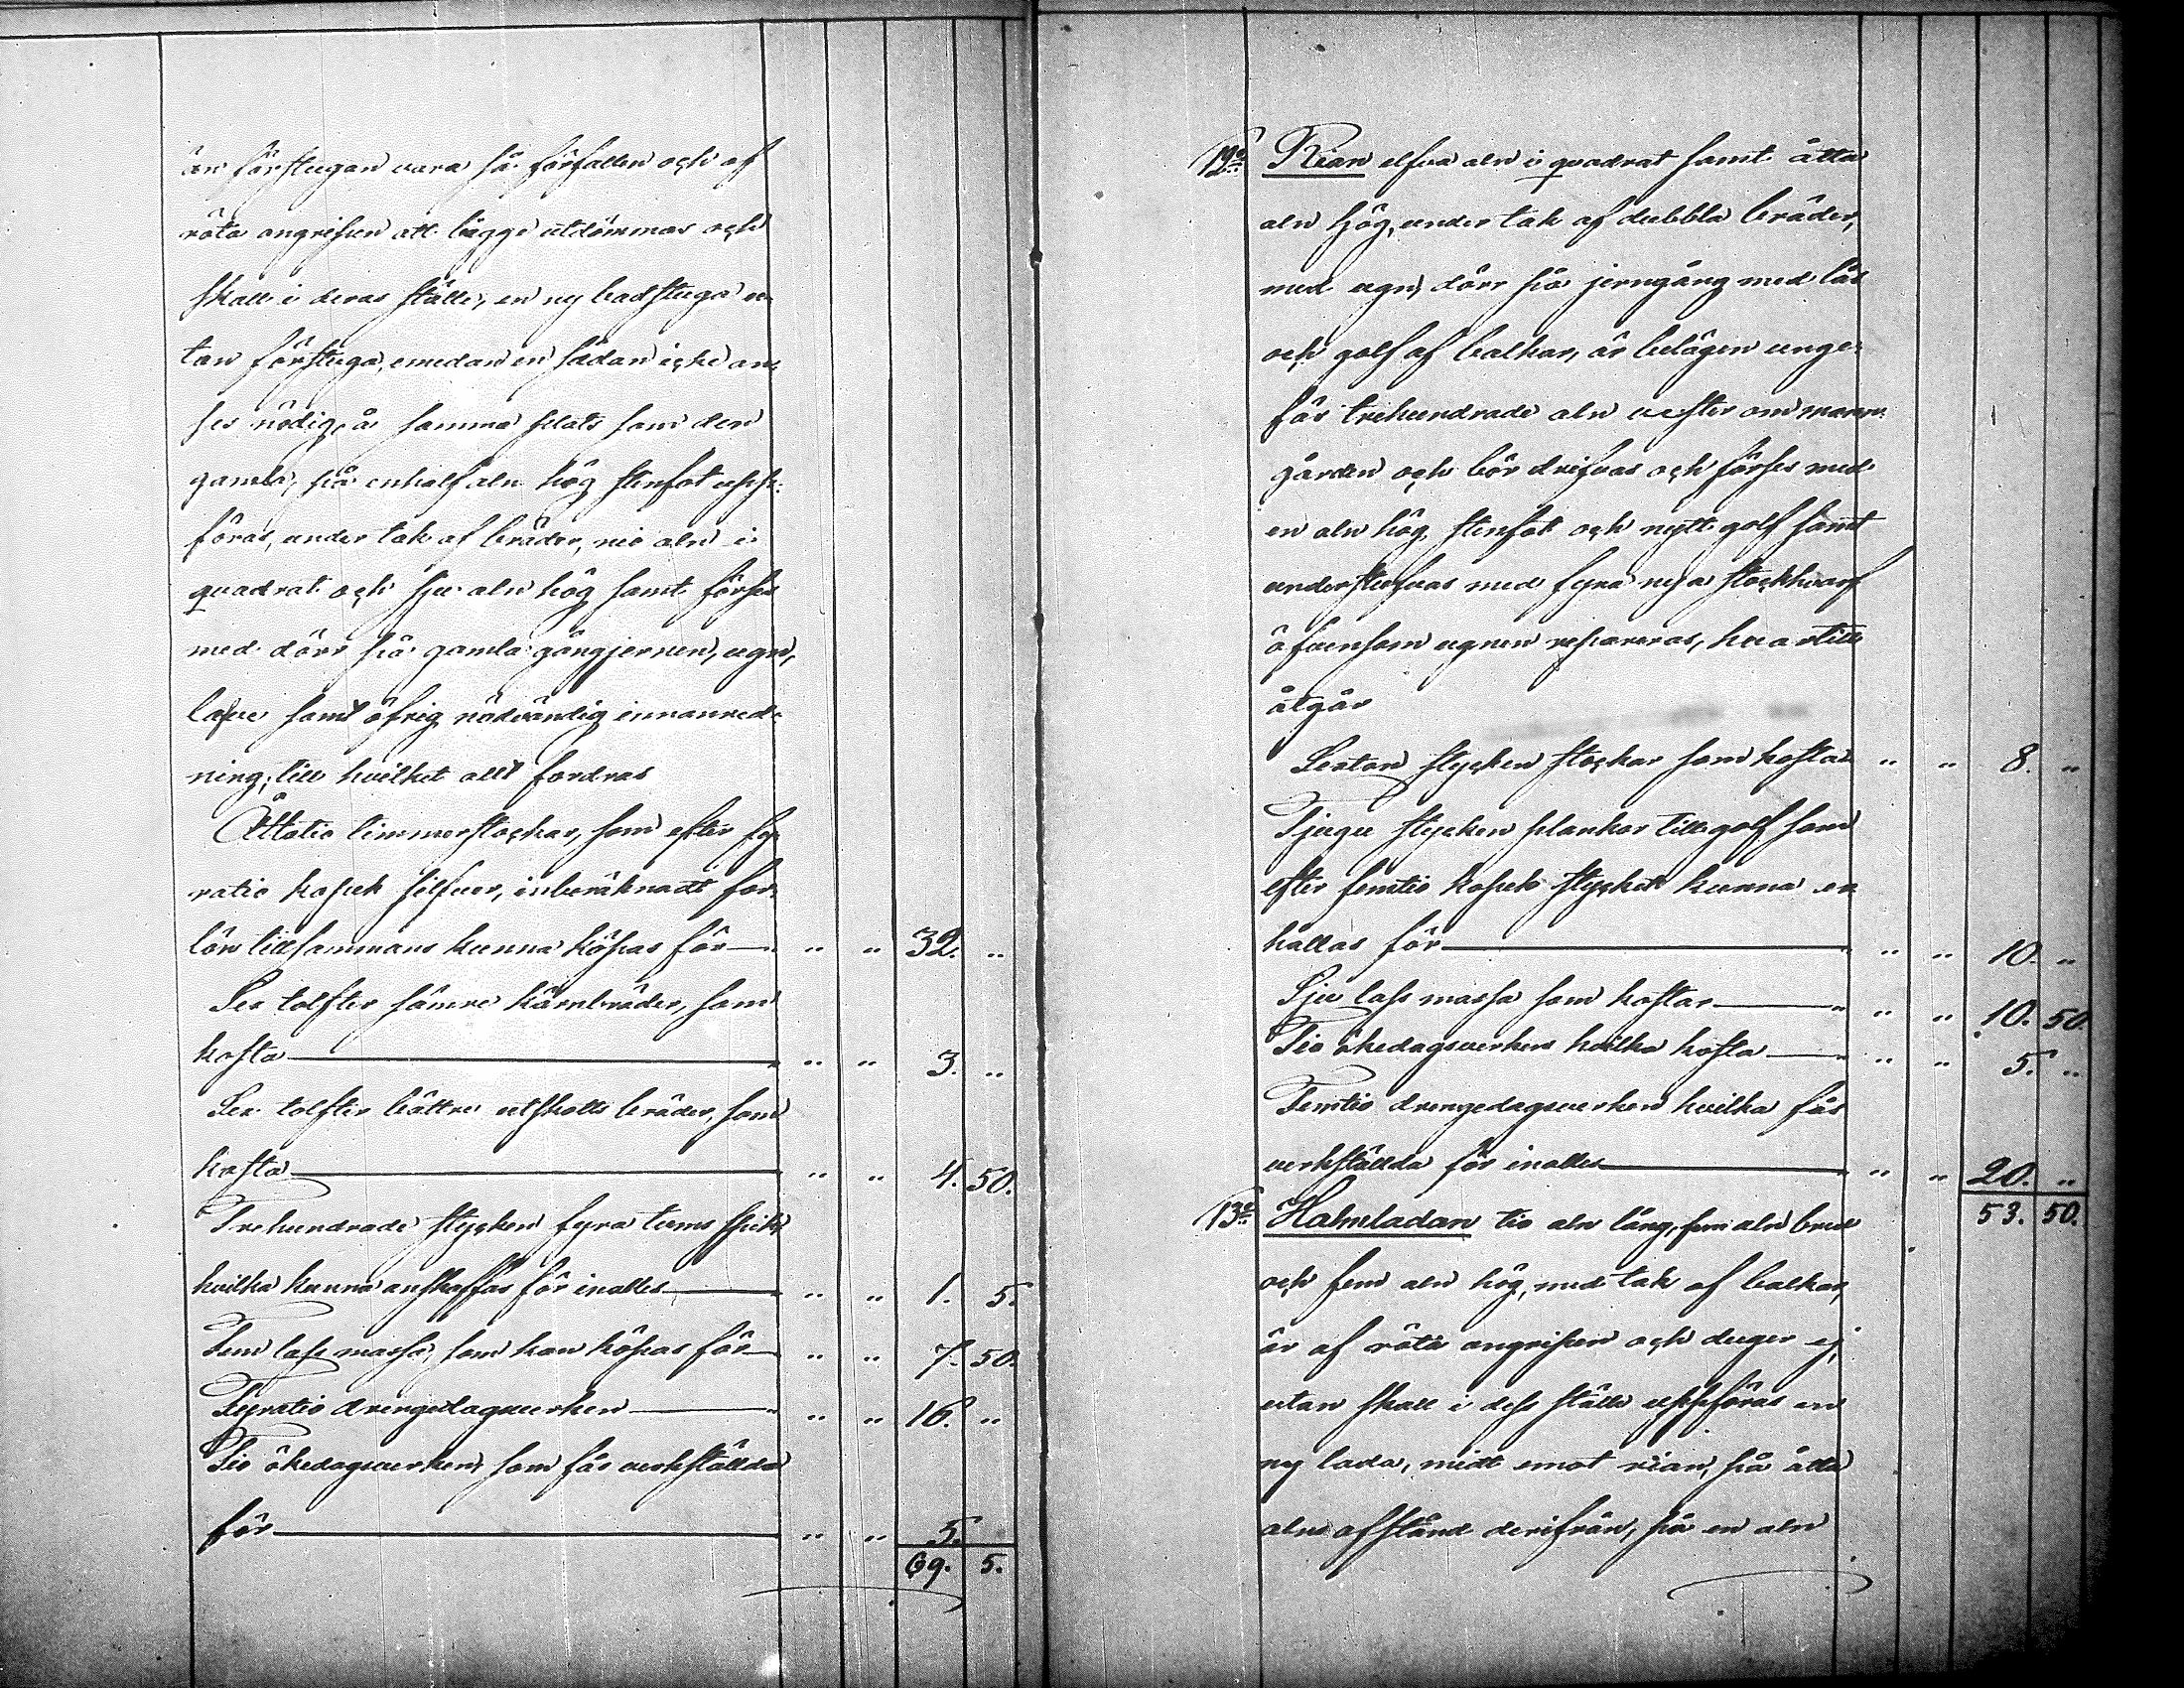 än förstugan vara så förfallen och af
röta angripen att bägge utdömmas och
skall i deras ställe, en ny badstuga u-
tan förstuga, emedan en sådan icke an-
ses nödig, å samma plats som den
gamla, på enhalf aln hög stenfot upp-
föras, under tak af bräder, nio aln i
quadrat och sju aln hög samt förses
med dörr på gamla gångjernen, ugn,
lafve samt öfrig nödvändig innanred-
ning, till hvilket allt fordras
Åttatio timmerstockar, som efter fy-
ratio kopek silfver, inberäknadt for-
lön tillsammans kunna köpas för — " " 32. "
Sex tolfter sämre kärnbräder, som
kosta — " " 3. "
Sex tolfter bättre utskotts bräder, som
kosta — " " 4. 50.
Trehundrade stycken fyra tums spik,
hvilka kunna anskaffas för inalles — " " 1. 5.
Fem lass mossa, som kan köpas för — " " 7. 50.
Fyratio drengedagsverken — " " 16. "
Tio ökedagsverken, som fås verkställda
för — " " 5.
69. 5.
12o Rian elfva aln i quadrat samt åtta
aln hög, under tak af dubbla bräder,
med ugn, dörr på jerngång med lås
och golf af balkar, är belägen unge-
fär trehundrade aln vester om mann-
gården och bör drifvas och förses med
en aln hög stenfot och nytt golf samt
understufvas med fyra nya stockhvarf
äfvensom ugnen repareras, hvartill
åtgår
Sexton stycken stockar som kosta " " 8. "
Tjugu stycken plankor till golf som
efter femtio kopek stycket kunna er-
hållas för — " " 10. "
Sju lass mossa som kostar — " " 10. 50
Tio ökedagsverken hvilka kosta — " " 5. "
Femtio drengedagsverken hvilka fås
verkställda för inalles — " " 20. "
53. 50.
13o Halmladan tio aln lång, fem aln bred
och fem aln hög, med tak af balkar,
är af röta angripen och duger ej,
utan skall i dess ställe uppföras en
ny lada, midt emot rian, på åtta
alns afstånd derifrån, på en aln